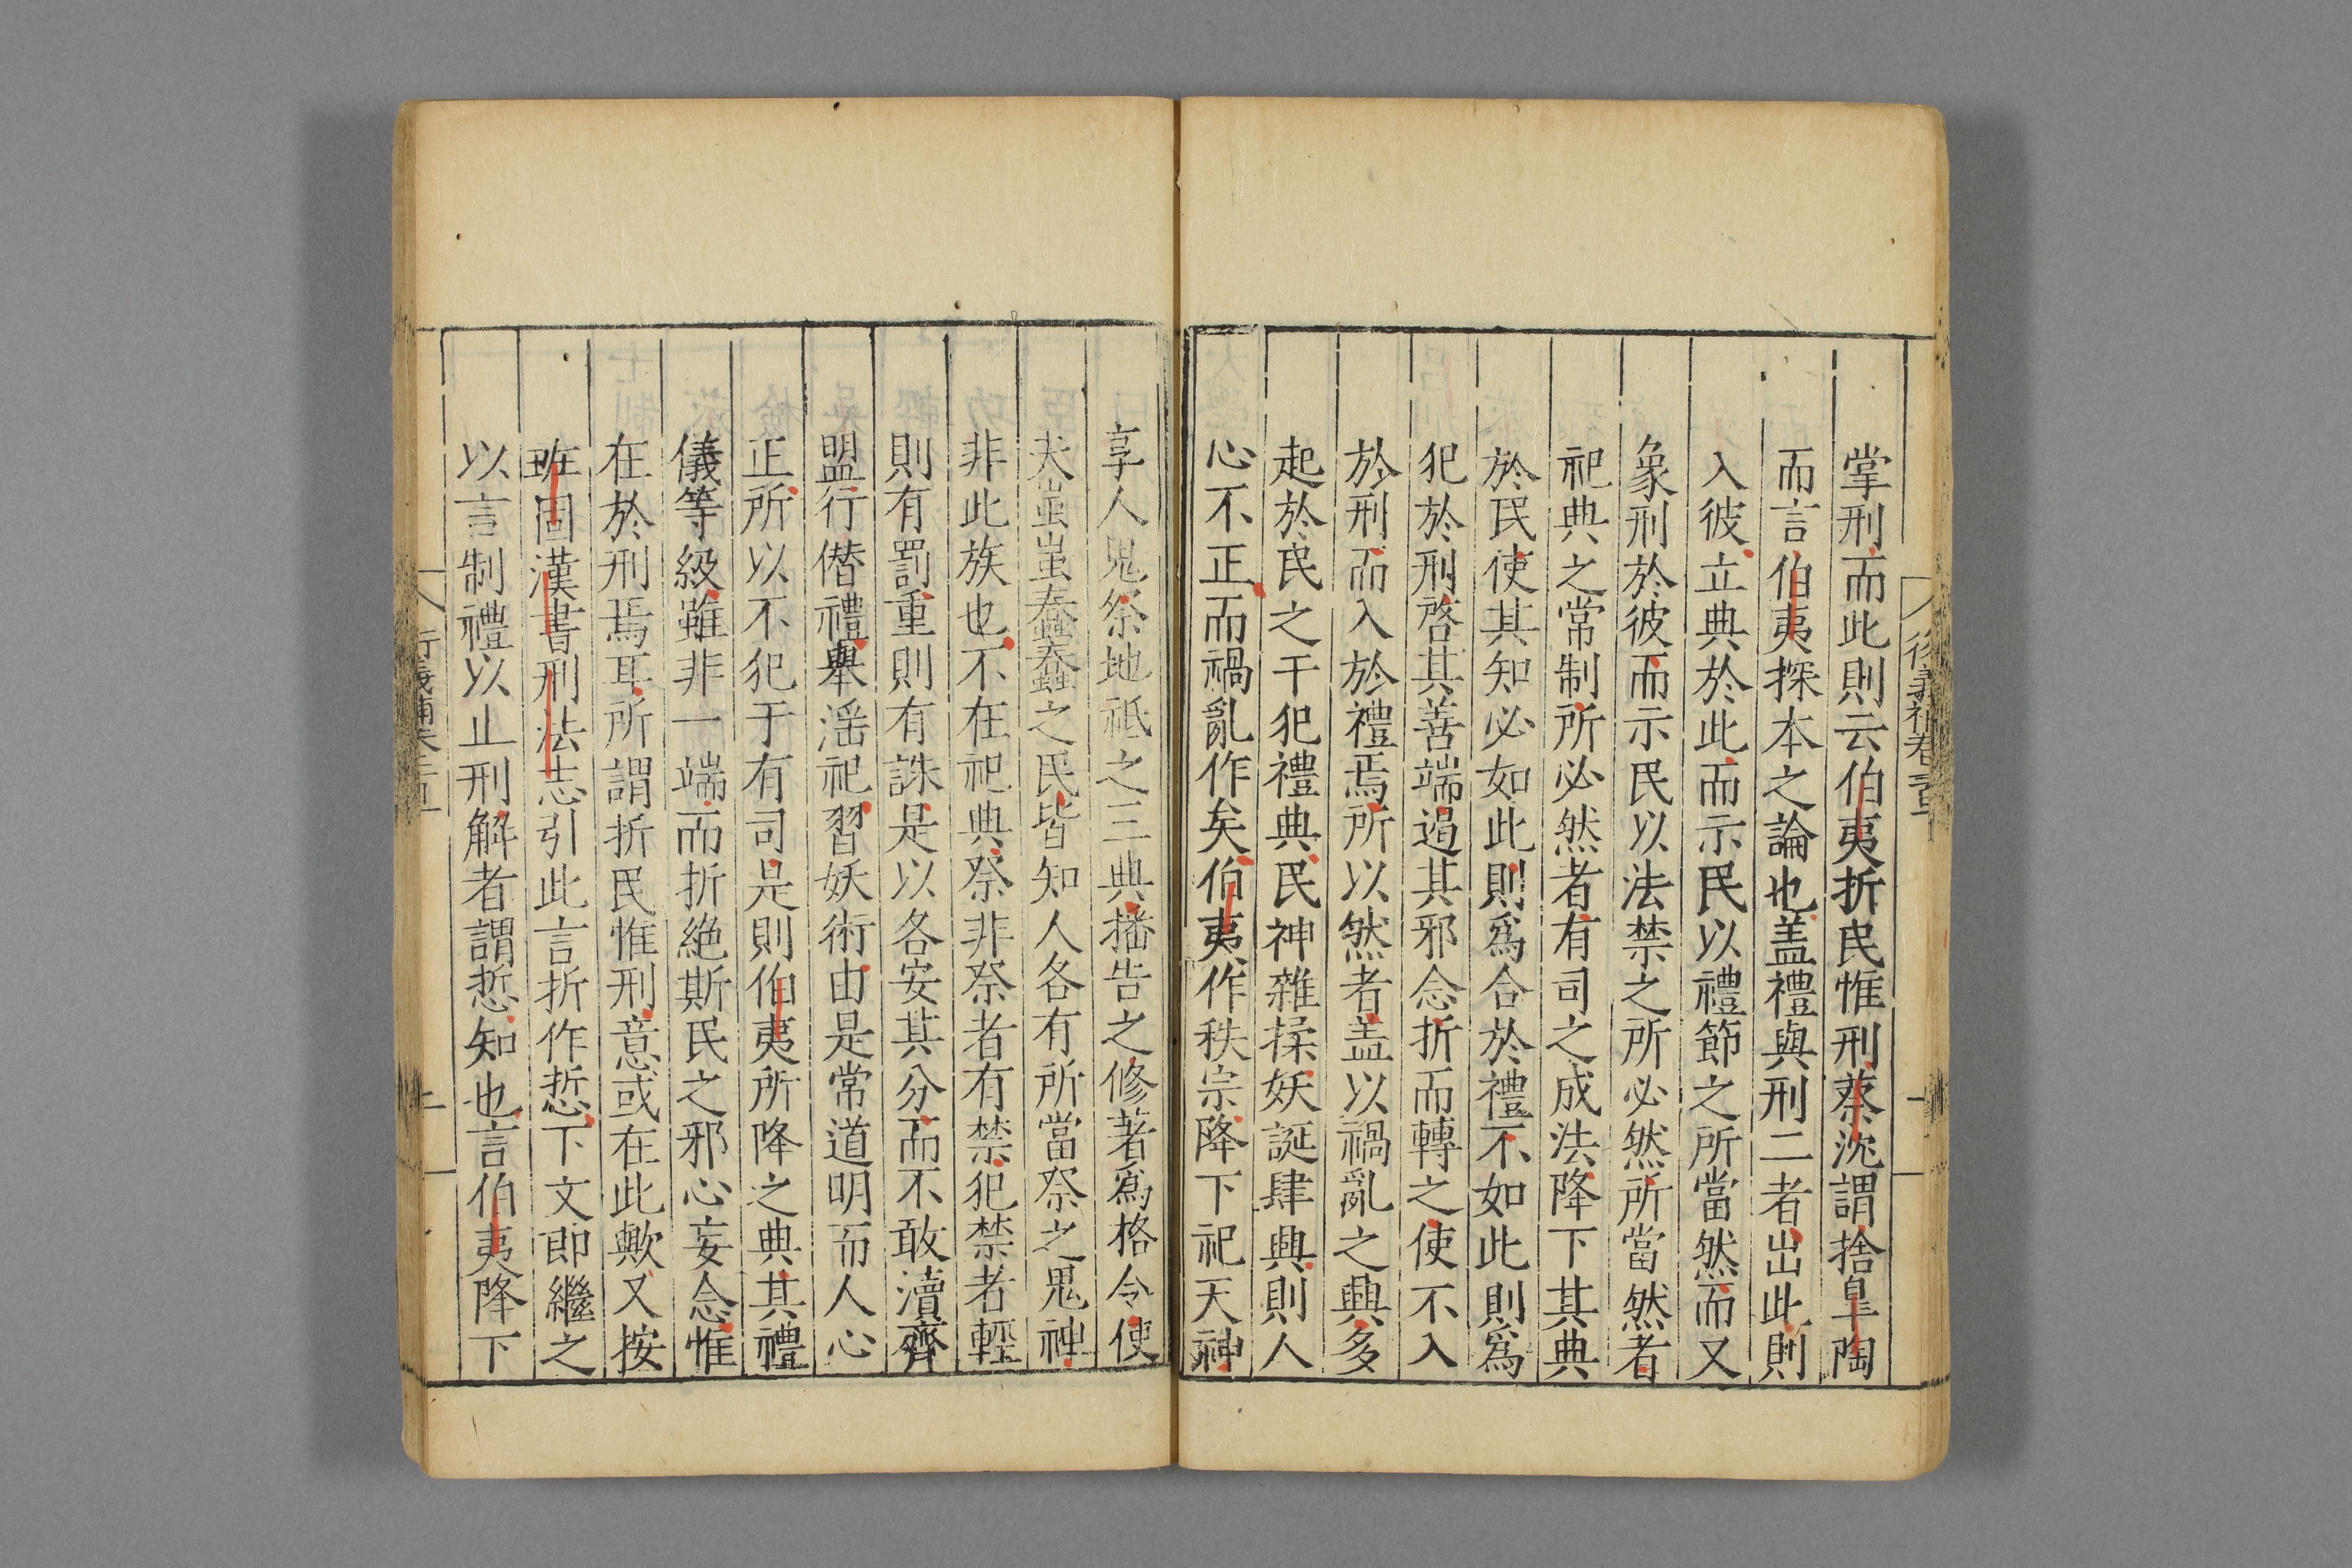 掌刑而此則云伯夷折民惟刑蔡沈謂捨皐陶
而言伯夷探本之論也盖禮與刑二者出此則
入彼立典於此而示民以禮節之所當然而又
象刑於彼而示民以法禁之所必然所當然者
祀典之常制所必然者有司之成法降下其典
於民使其知必如此則爲合於禮不如此則爲
犯於刑啓其善端遏其邪念折而轉之使不入
於刑而入於禮焉所以然者盖以禍亂之興多
起於民之干犯禮典民神雜揉妖誕肆興則人
心不正而禍亂作矣伯夷作秩宗降下祀天神
享人鬼祭地祗之三典播告之修著爲格令使
夫蚩蚩蠢蠢之民皆知人各有所當祭之鬼神
非此族也不在祀典祭非祭者有禁犯禁者輕
則有罰重則有誅是以各安其分而不敢瀆齊
盟行僭禮舉滛祀習妖術由是常道明而人心
正所以不犯于有司是則伯夷所降之典其禮
儀等級雖非一端而折絶斯民之邪心妄念惟
在於刑焉耳所謂折民惟刑意或在此歟又按
班固漢書刑法志引此言折作悊下文即繼之
以言制禮以止刑解者謂悊知也言伯夷降下